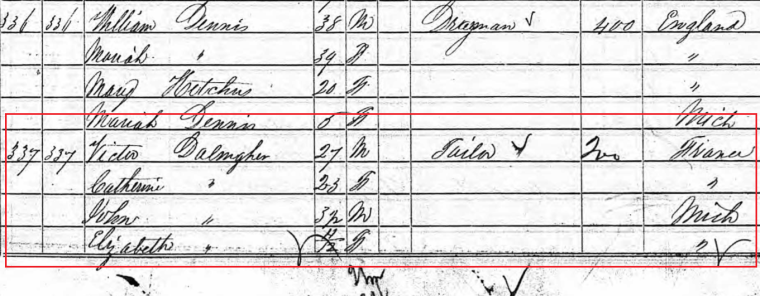 336 336 William Dennis 38 M Drayman √ 400 England
Mariah " 39 F "
Maud Hitchus 20 F "
Mariah Dennis 5 F Mich
337 337 Victor Dalmgher 27 M Tailor √ 200 France
Catherine " 23 F "
John " 3 M Mich
Elizabeth " F "